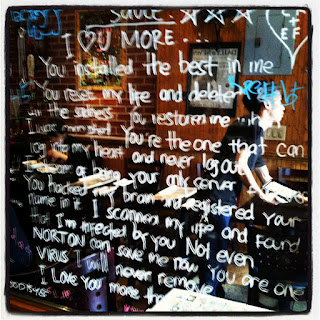 I ♡ U MORE...
You installed the best in me
You reset my life and delete
the sadness You restore me
You're the one that can
Log into my heart and never log out
I dream of being your only server
You hacked my brain and registered your
name in it I scanned my life and found
that I'm infected by you Not even
NORTON can save me now You are one
VIRUS I will never remove
I Love You more